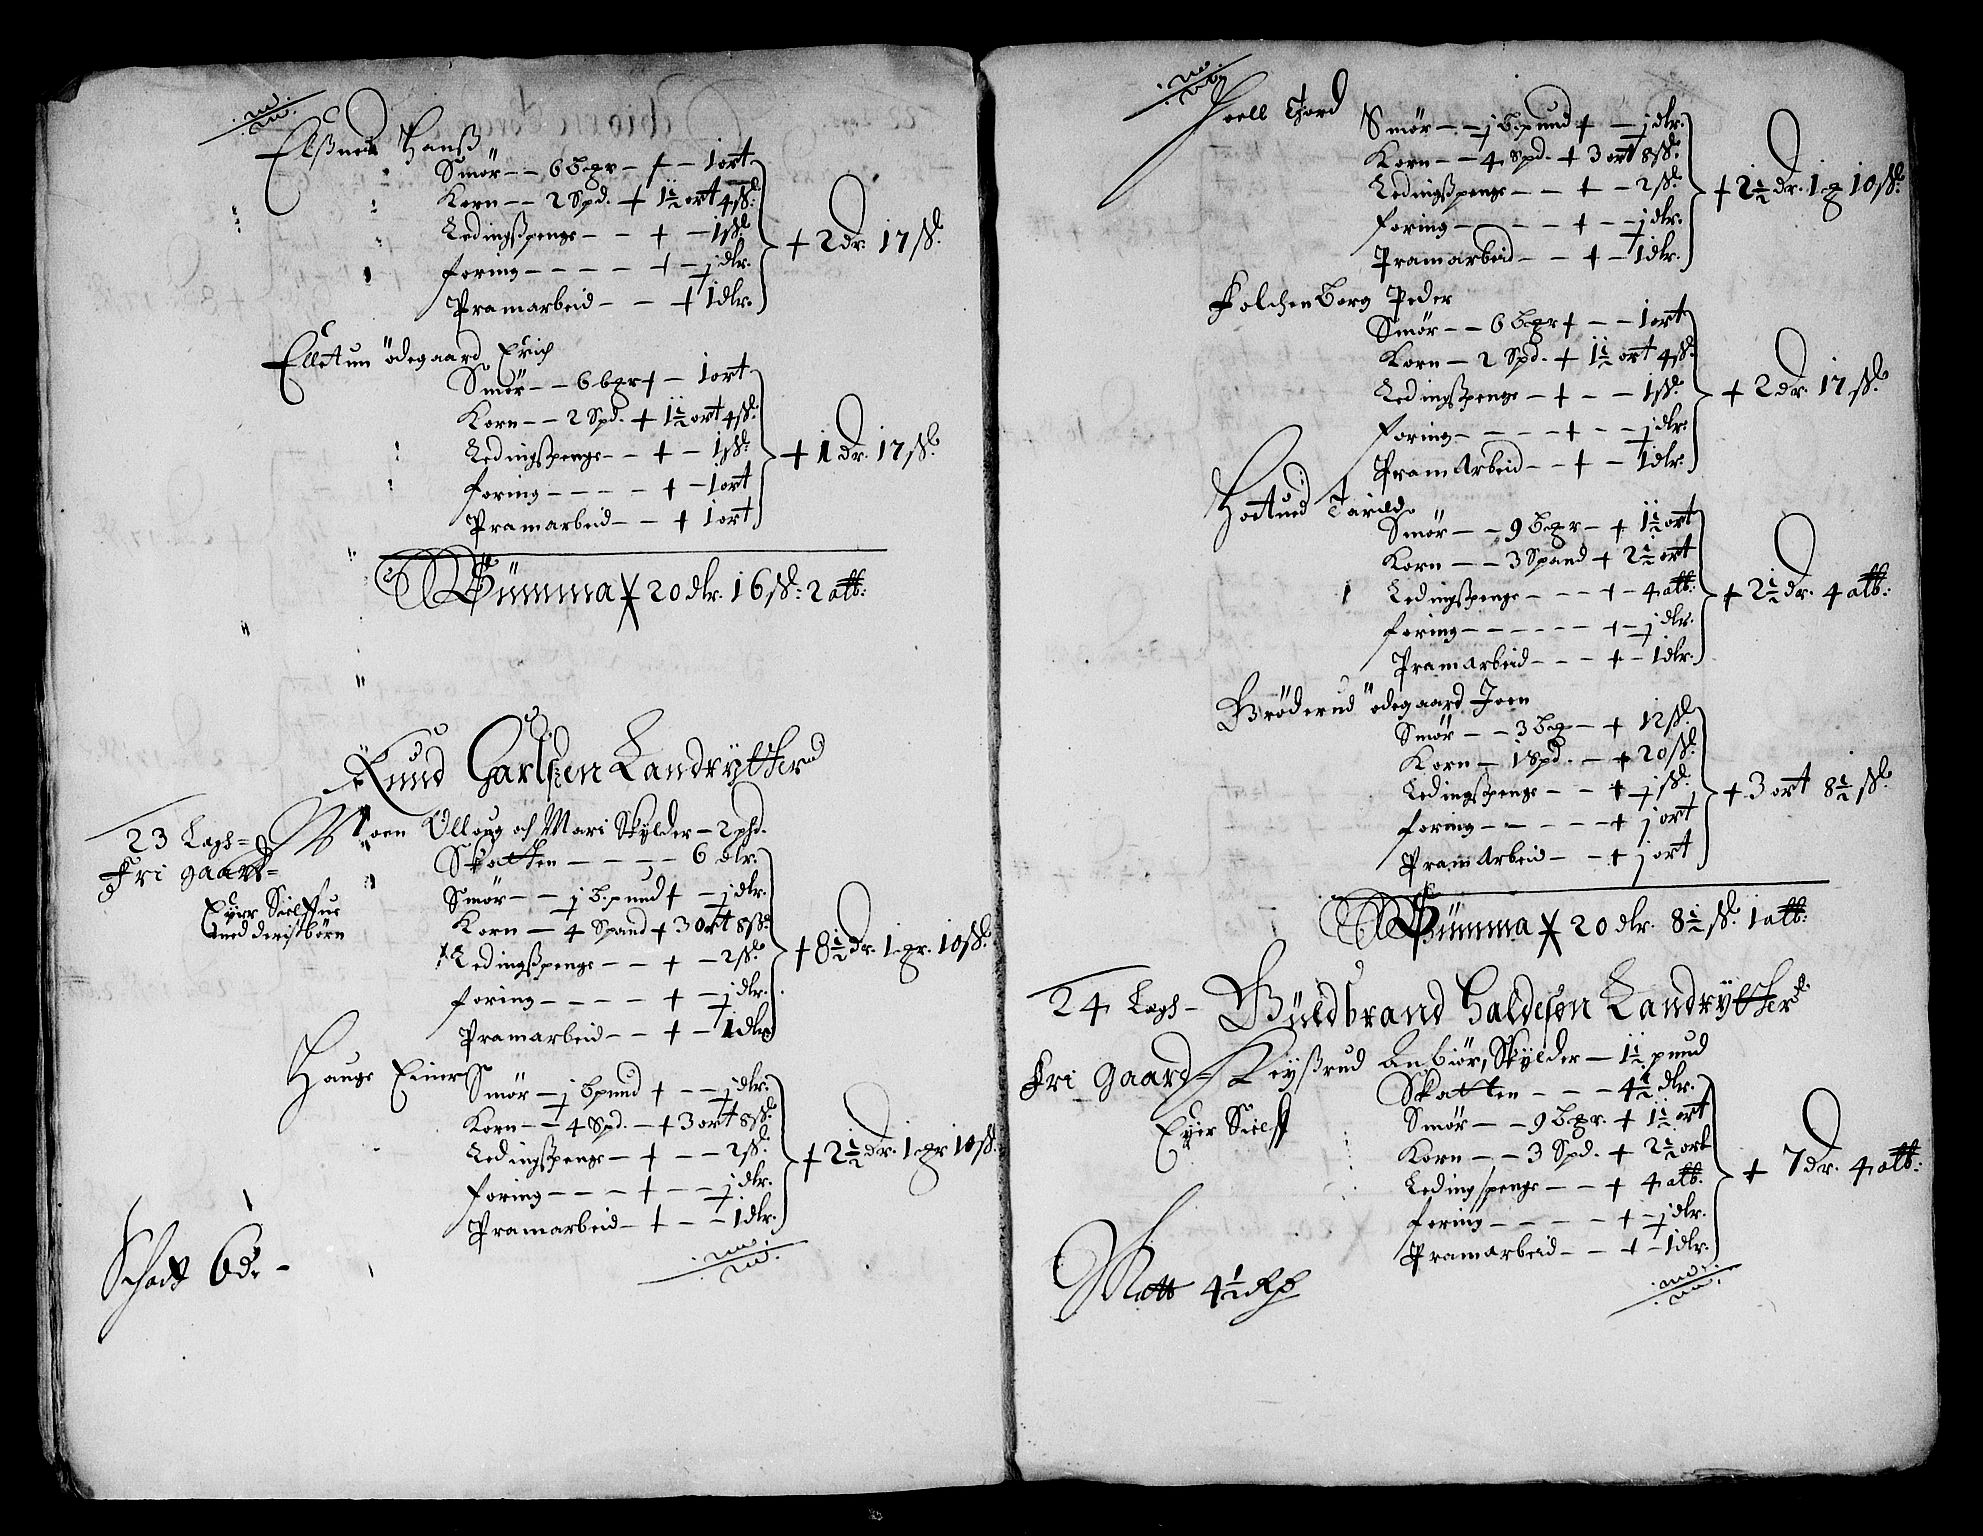 Elßned Hanß
Smör – – 6 b.gr – + – 1 ort
Korn – – 2 Spd. + 1½ ort 4 sk:
Ledingßpenge – – + – 1 sk:
Foring – – – – – + – j dlr.
Pramarbeid – – + 1 dlr.
+ 2 dr. 17 sk.
Elletun ödegaard Erich
Smör – – 6 b.gr + – 1 ort
Korn – – 2 Spd. + 1½ ort 4 sk:
Ledingßpenge – – + – 1 sk:
Foring – – – – – + – 1 ort
Pramarbeid – – + 1 ort
+ 1 dr. 17 sk.
Summa + 20 dlr. 16 sk: 2 alb:
Knud Carlsen Landrytter
23 Lags =
Fri gaard =
Eyer Sielffue
med
Moen Olloug och Mari Skylder – 2 phd.
Skatten – – – – 6 dlr.
Smör – – j b.pund + – j dlr.
Korn – 4 Spand + 3 ort 8 sk.
Ledingßpenge – – + – 2 sk.
Foring – – – – + – j dlr.
Pramarbeid – – + – 1 dlr.
+ 8½ dr. 1 gr. 10 sk.
Hauge Einer
Smör – j bpund + – – j dlr.
Korn – – 4 Spd. – + 3 ort 8 sk.
Ledingßpenge – + – – 2 sk.
Foring – – – – + – – j dlr.
Pramarbeid – + – – 1 dlr.
+ 2½ dr. 1 gr 10 sk.
Schatt 6 dr –
Hoell Tord
Smör – – j b.pund + – j dlr.
Korn – – 4 Spd. + 3 ort 8 sk.
Ledingßpenge – – + – 2 sk.
Foring – – – – + – j dlr.
Pramarbeid – – + – 1 dlr.
+ 2½ dr. 1 gr 10 sk.
Folchenborg Peder
Smör – – 6 b.gr + – – 1 ort
Korn – 2 Spd. + 1½ ort 4 sk.
Ledingßpenge – + – – 1 sk.
Foring – – – – + – – j dlr.
Pramarbeid – – + – 1 dlr.
+ 2 dr. 17 sk.
Holtued Tarild
Smör – – 9 b.gr – + 1½ ort
Korn – – 3 Spand + 2½ ort
Ledingßpenge – – – + – 4 alb:
Foring – – – – – – + – j dlr.
Pramarbeid – – – + – 1 dlr.
+ 2½ dr. 4 alb:
Bröderud ödegaard Joen
Smör – – 3 b.g – + 12 sk.
Korn – 1 Spd. – + 20 sk.
Ledingßpenge – – + j sk.
Foring – – – – – + j ort
Pramarbeid – – + j ort
+ 3 ort 8½ sk.
Summa + 20 dlr. 8½ sk. 1 alb:
24 Lags – Guldbrand Haldesøn Landrytter
Fri Gaard = Keyßrud Anbiör, Skylder – 1½ pund
Eyer Sielff
Skatten – – – 4½ dlr.
Smör – – 9 b.gr. + 1½ ort
Korn – – 3 Spd. + 2½ ort
Ledingspenge – – + 4 alb.
Foring – – – – – + – j dlr.
Pramarbeid – – + – 1 dlr.
+ 7 dr. 4 alb:
Skatt 4½ Rd